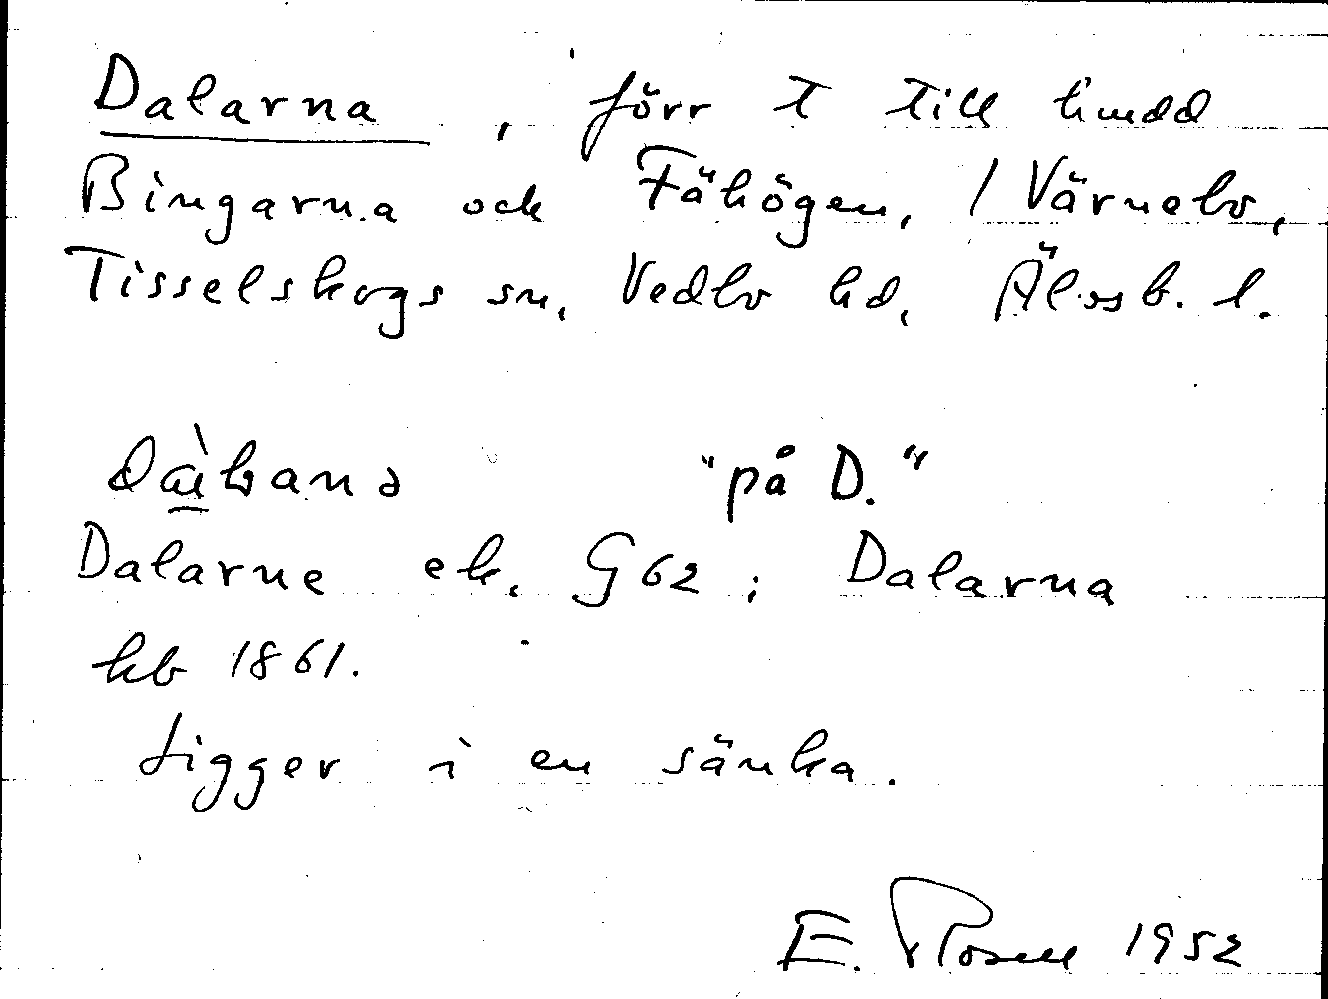 Dalarna, förr t till hmdd
Bingarna och Fähögen, / Värnebo,
Tisselskogs sn, Vedbo hd, Älvsb. l.
"på D."
Dalarne ek. G 62; Dalarna
kb 1861.
Ligger i en sänka.
E. Rosell 1952